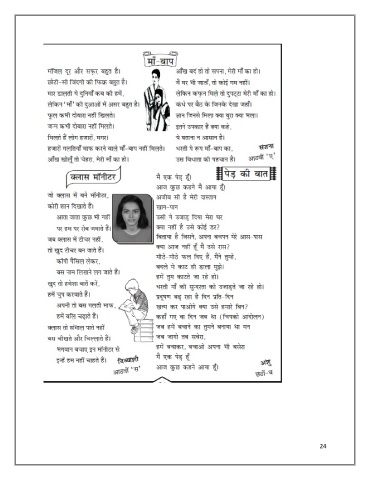 माँ-बाप
मंजिल दूर और सफर बहुत है।
छोटी-सी जिंदगी की फिक्र बहुत है।
मार डालती ये दुनियाँ कब की हमें,
लेकिन 'माँ' की दुआओं में असर बहुत है।
फूल कभी दोबारा नहीं खिलते।
जन्म कभी दोबारा नहीं मिलते।
मिलते हैं लोग हजारों, मगर।
हजारों गलतियाँ माफ करने वाले माँ-बाप नहीं मिलते।
आँख खोलूँ तो चेहरा, मेरी माँ का हो।
आँख बंद हो तो सपना, मेरी माँ का हो।
मैं मर भी जाऊँ, तो कोई गम नहीं।
लेकिन कफन मिले तो दुपट्टा मेरी माँ का हो।
कंधे पर बैठ के जिनके देखा जहाँ।
ज्ञान जिनसे मिला क्या बुरा क्या भला।
इतने उपकार हैं क्या कहे,
ये बताना न आसान है।
धरती पे रूप माँ-बाप का,
उस विधाता की पहचान है।
संजना
आठवीं 'ए'
क्लास मॉनीटर
जो क्लास में बने मॉनीटर,
कोरी शान दिखाते हैं।
आता जाता कुछ भी नहीं
पर हम पर रोब जमाते हैं।
जब क्लास में टीचर नहीं,
तो खुद टीचर बन जाते हैं।
कॉपी पैंसिल लेकर,
बस नाम लिखने लग जाते हैं।
खुद तो हमेशा बातें करें,
हमें चुप करवाते हैं।
अपनी तो बस गलती माफ,
हमें बलि चढ़ाते हैं।
क्लास तो संभाल पाते नहीं
बस चीखते और चिल्लाते हैं।
भगवान बचाए इन मॉनीटर से
इन्हें हम नहीं चाहते हैं।
आठवीं 'स'
पेड़ की बात
मैं एक पेड़ हूँ।
आज कुछ कहने मैं आया हूँ।
अजीब सी है मेरी दास्तान
खान-पान
उसी ने उजाड़ दिया मेरा घर
क्या नहीं है उसे कोई डर?
बिताया है जिसने, अपना बचपन मेरे आस-पास
क्या आज नहीं हूँ मैं उसे रास?
मीठे-मीठे फल दिए हैं, मैंने तुम्हें,
बदले में काट ही डाला मुझे।
हमें तुम काटते जा रहे हो।
धरती माँ की सुन्दरता को उजाड़ते जा रहे हो।
प्रदूषण बढ़ रहा है दिन प्रति-दिन
खत्म कर पाओगे क्या उसे हमारे बिन?
कहाँ गए वो दिन जब था (चिपको आंदोलन)
जब हमें बचाने का तुमने बनाया था मन
जब जागो तब सवेरा,
हमें बचाकर, बचाओ अपना भी बसेरा
मैं एक पेड़ हूँ
आज कुछ कहने आया हूँ।
अंशु
24